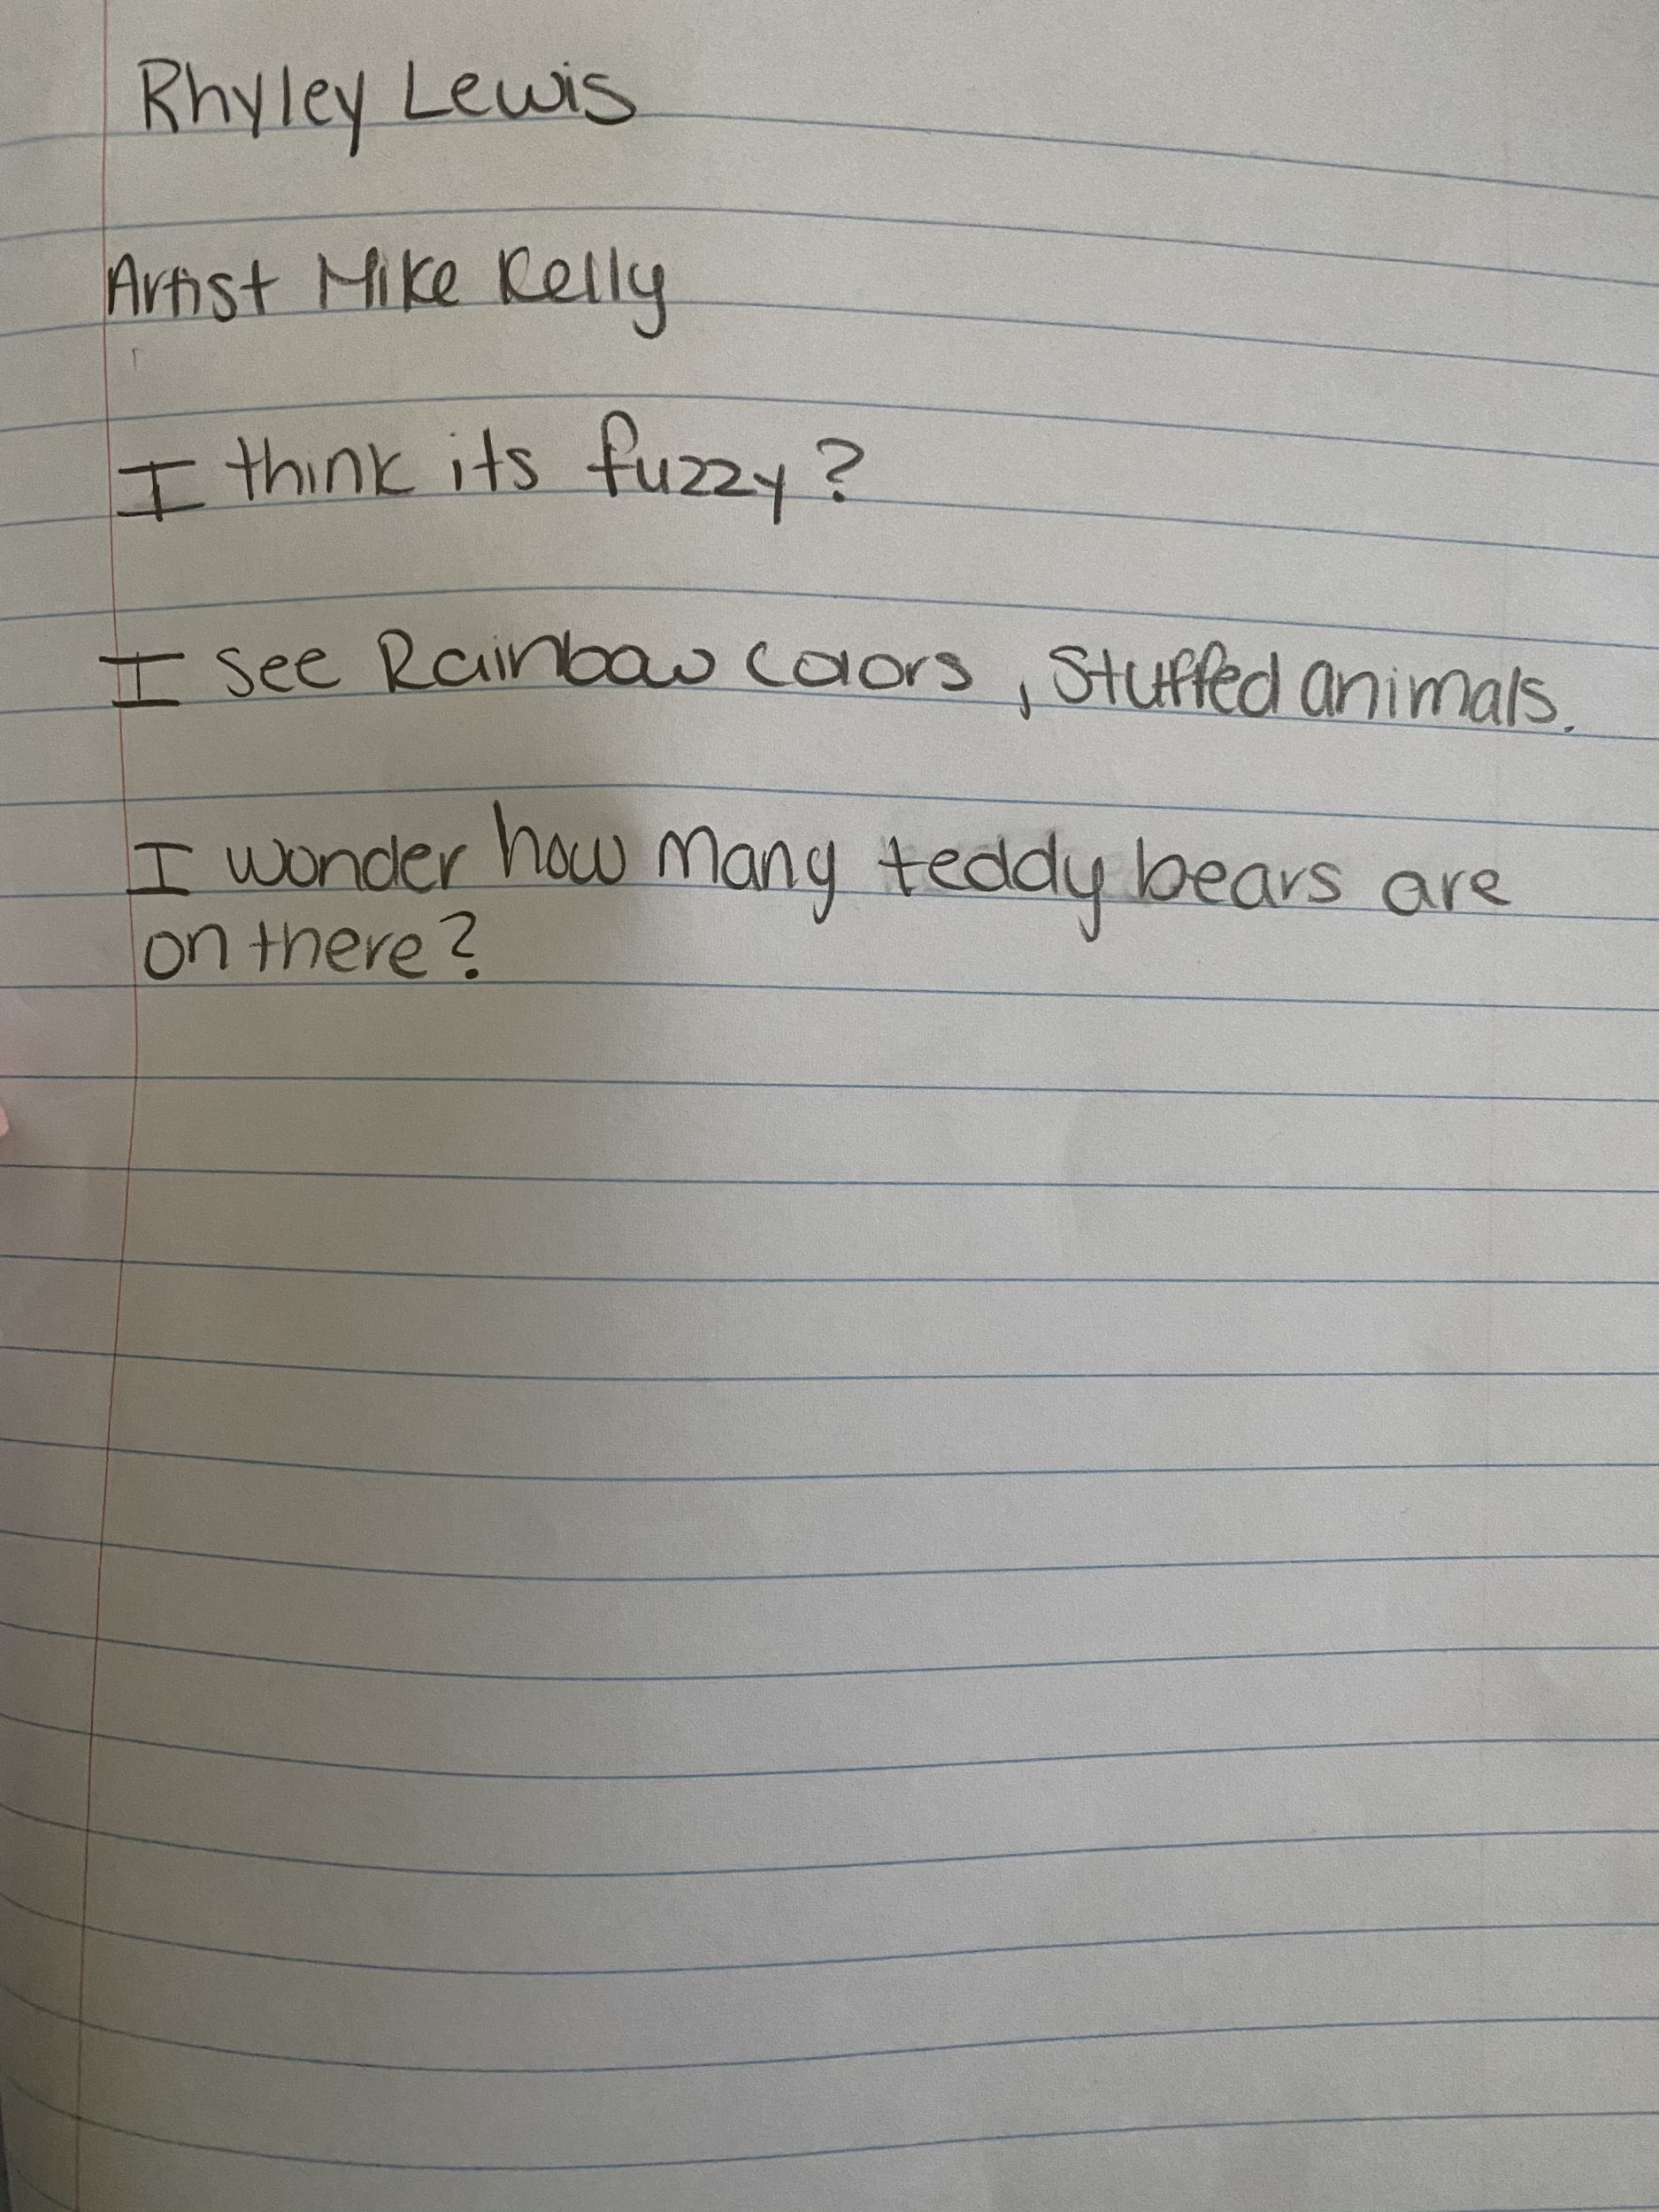 Rhyley Lewis
Artist Mike Kelly
I think its fuzzy?
I see Rainbow colors, Stuffed animals.
I wonder how many teddy bears are
on there?